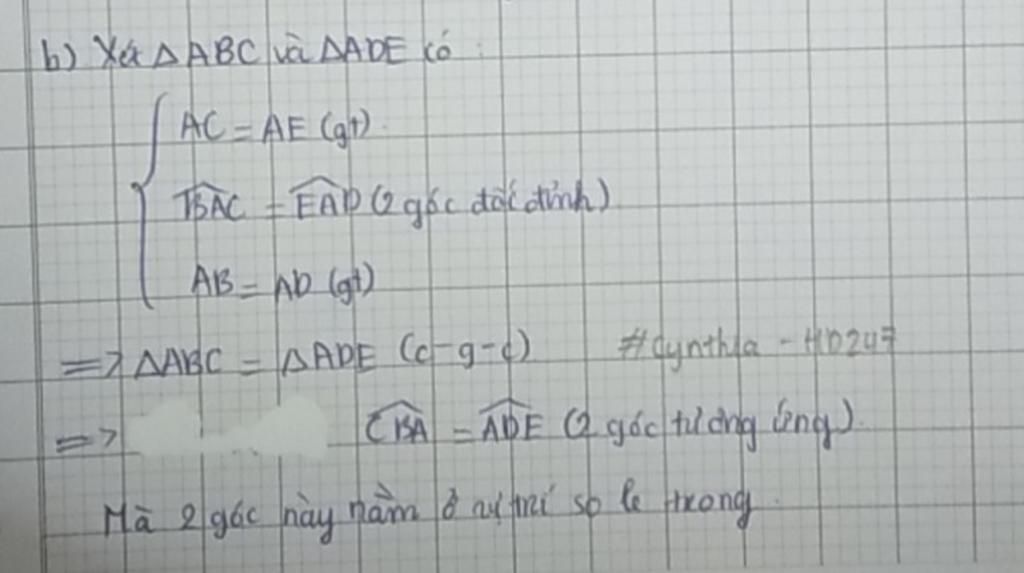 b) Xét △ABC và △ADE có :
AC = AE (gt).
\widehat{BAC} = \widehat{EAD} (2 góc đối đỉnh)
AB = AD (gt)
=> △ABC = △ADE (c-g-c) #Cynthia - HD247
=> \widehat{CBA} = \widehat{ADE} (2 góc tương ứng).
Mà 2 góc này nằm ở vị trí so le trong.